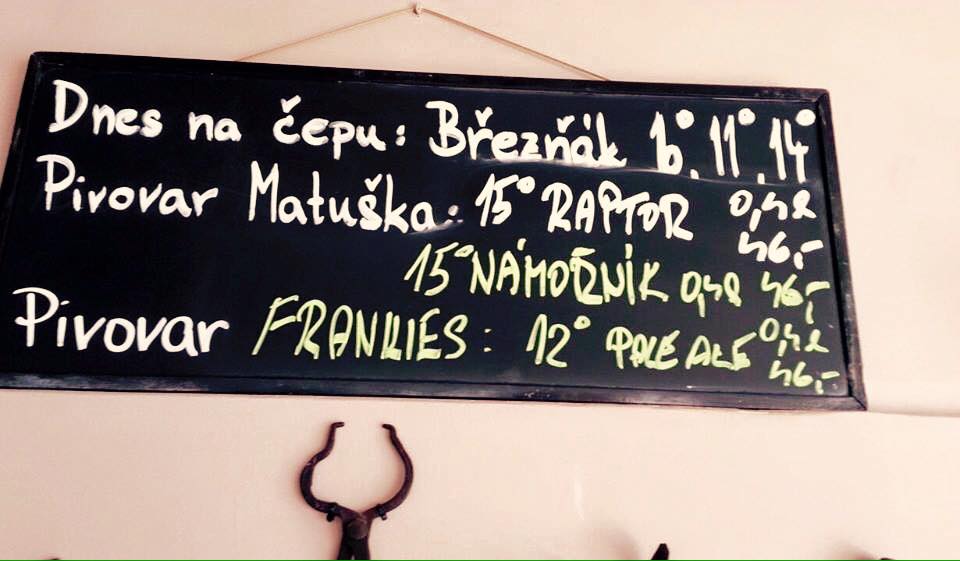 Dnes na čepu: Březňák 10°. 11°. 14°
Pivovar Matuška: 15° RAPTOR 0,4l 46,-
15° NÁMOŘNÍK 0,4l 46,-
Pivovar FRANKIES: 12° PALE ALE 0,4l 46,-